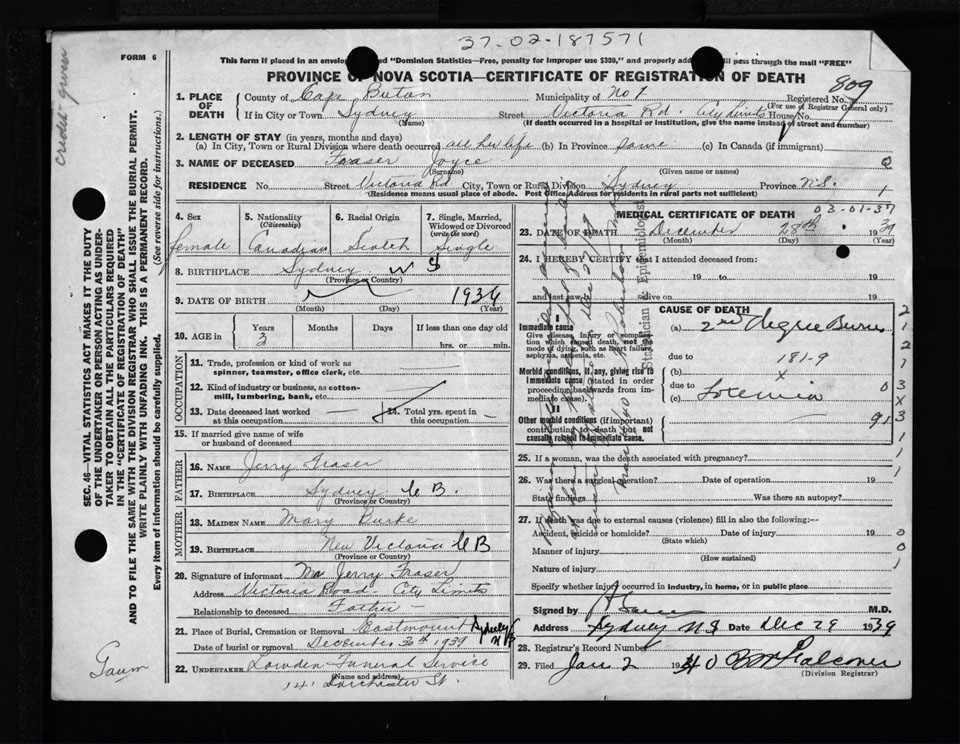 37-02-187571
FORM 6
This form if placed in an envelope "Dominion Statistics—Free, penalty for improper use $300," and properly addressed will pass through the mail "FREE"
PROVINCE OF NOVA SCOTIA—CERTIFICATE OF REGISTRATION OF DEATH
Registered No. 809
(For use of Registrar General only)
1. PLACE OF DEATH
County of Cape Breton Municipality of No 1
If in City or Town Sydney Street Victoria Rd. City Limits House No.
(Name) (If death occurred in a hospital or institution, give the name instead of street and number)
2. LENGTH OF STAY (in years, months and days)
(a) In City, Town or Rural Division where death occurred all her life (b) In Province same (c) In Canada (if immigrant)
3. NAME OF DECEASED Fraser Joyce
(Surname) (Given name or names)
RESIDENCE No. Street Victoria Rd, City, Town or Rural Division Sydney Province N.S.
(Residence means usual place of abode. Post Office Address for residents in rural parts not sufficient)
4. Sex female
5. Nationality (Citizenship) Canadian
6. Racial Origin Scotch
7. Single, Married, Widowed or Divorced (write the word) Single
8. BIRTHPLACE Sydney N S
(Province or Country)
9. DATE OF BIRTH 1936
(Month) (Day) (Year)
10. AGE in Years 3 Months Days If less than one day old
hrs. or min.
OCCUPATION
11. Trade, profession or kind of work as spinner, teamster, office clerk, etc.
12. Kind of industry or business, as cotton-mill, lumbering, bank, etc.
13. Date deceased last worked at this occupation
14. Total yrs. spent in this occupation
15. If married give name of wife or husband of deceased
FATHER
16. NAME Jerry Fraser
17. BIRTHPLACE Sydney C B.
(Province or Country)
MOTHER
18. MAIDEN NAME Mary Burke
19. BIRTHPLACE New Victoria C B
(Province or Country)
20. Signature of informant Mr Jerry Fraser
Address Victoria Road - City Limits
Relationship to deceased Father -
21. Place of Burial, Cremation or Removal Eastmount Sydney N S
Date of burial or removal December 30th 1939
22. UNDERTAKER Lowden Funeral Service
(Name and Address)
141 Dorchester St.
MEDICAL CERTIFICATE OF DEATH
03-01-37
23. DATE OF DEATH December 28th 1939
(Month) (Day)
24. I HEREBY CERTIFY that I attended deceased from:
19 to 19
and last saw alive on 19
CAUSE OF DEATH
I
Immediate cause
Give disease, injury or complication which caused death, not the mode of dying, such as heart failure, asphyxia, asthenia, etc.
(a) 2nd degree Burns
due to
Morbid conditions, if any, giving rise to immediate cause (stated in order proceeding backwards from immediate cause).
(b) 181-9
x
due to
(c) Toxemia
II
Other morbid conditions (if important) contributing to death but not causally related to immediate cause.
Statistician Epidemiologist
25. If a woman, was the death associated with pregnancy?
26. Was there a surgical operation? Date of operation 19
State findings Was there an autopsy?
27. If death was due to external causes (violence) fill in also the following:—
Accident, suicide or homicide? Date of injury 19
(State which)
Manner of injury
(How sustained)
Nature of injury
Specify whether injury occurred in industry, in home, or in public place
Signed by M.D.
Address Sydney N S Date Dec 29 1939
28. Registrar's Record Number
29. Filed Jan 2 1940
(Division Registrar)
SEC. 46—VITAL STATISTICS ACT MAKES IT THE DUTY
OF THE UNDERTAKER OR PERSON ACTING AS UNDERTAKER TO OBTAIN ALL THE PARTICULARS REQUIRED
IN THE "CERTIFICATE OF REGISTRATION OF DEATH"
AND TO FILE THE SAME WITH THE DIVISION REGISTRAR WHO SHALL ISSUE THE BURIAL PERMIT.
WRITE PLAINLY WITH UNFADING INK. THIS IS A PERMANENT RECORD.
Every item of information should be carefully supplied. (See reverse side for instructions.)